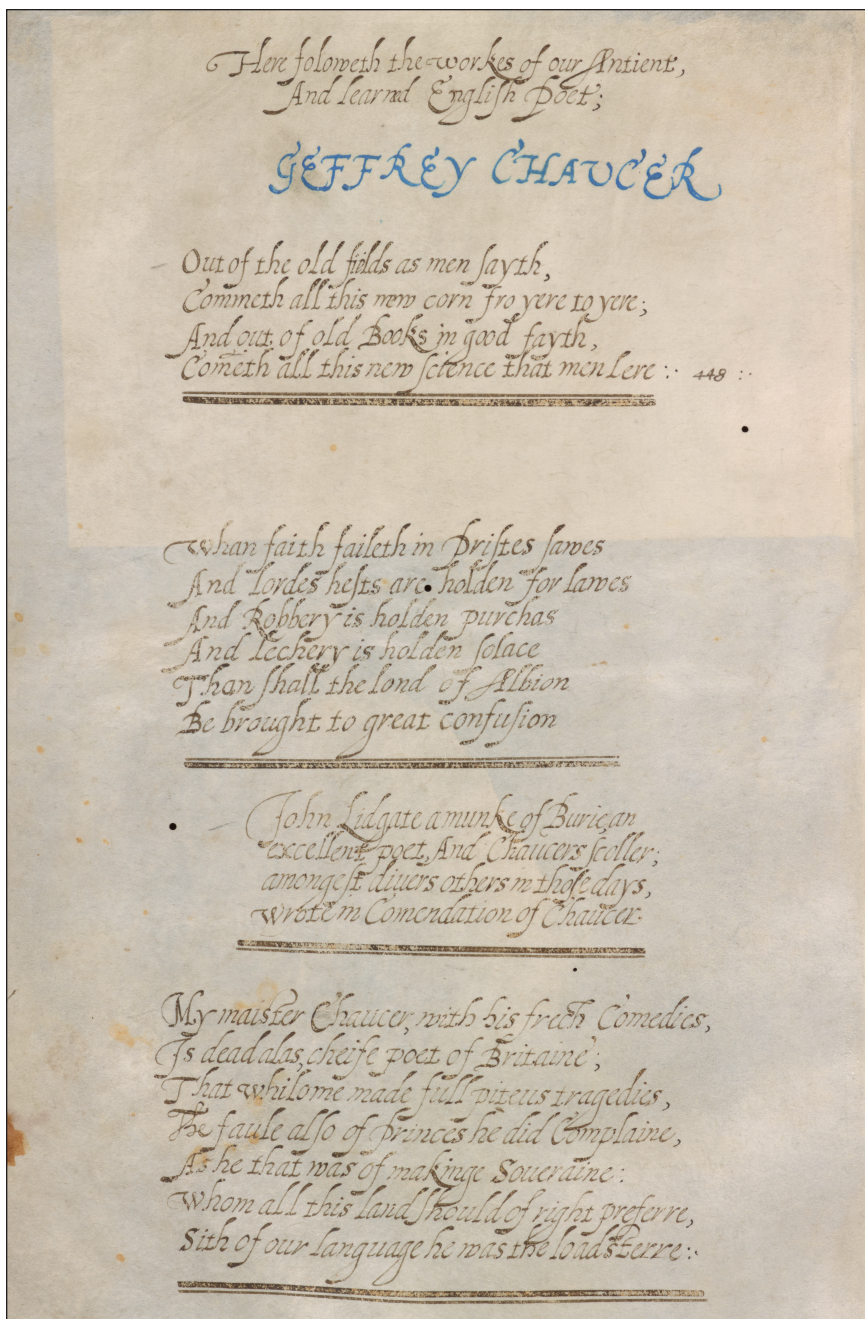 Here foloweth the workes of our Æntient,
And learnd English Poet;
GEFFREY CHAUCER
Out of the old fields as men sayth,
Commeth all this new corn fro yere to yere;
And out of old Books in good fayth,
Cometh all this new science that men lere :· 448 :·
Whan faith faileth in Pristes sawes
And Lordes hests are holden for lawes
And Robbery is holden purchas
And Lechery is holden solace
Than shall the lond of Ælbion
Be brought to great confusion
John Lidgate a munke of Burie, an
excellent poet, And Chaucers scoller;
amongest divers others in those days,
wrote in Comendation of Chaucer·
My maister Chaucer, with his frech Comedies,
Is dead alas, cheife poet of Britaine;
That whilome made full piteus tragedies,
The faule also of Princes he did Complaine,
As he that was of makinge Soueraine:
Whom all this land should of right preferre,
Sith of our language he was the loadsterre :·